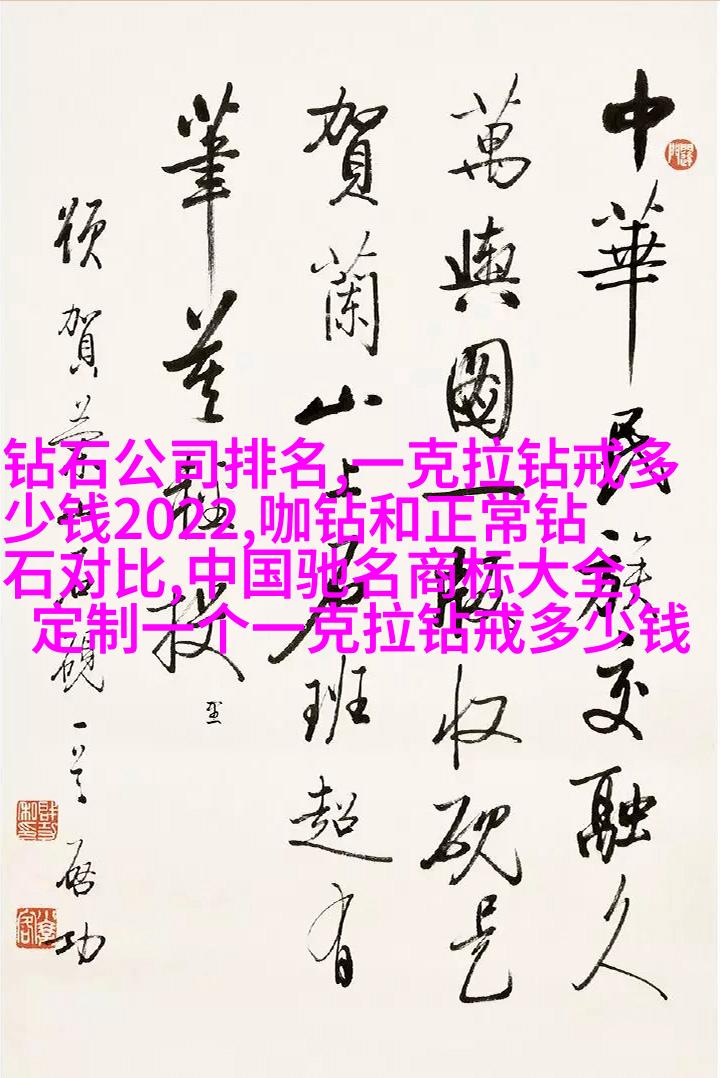 钻石公司排名,一克拉钻戒多
少钱2022,咖钻和正常钻
石对比,中国驰名商标大全,
定制一个一克拉钻戒多少钱
中華民族交融久
萬輿國一版收硯是
賀蘭山上石班超有
筆莫輕投
頌賀蘭石硯一首 啟功